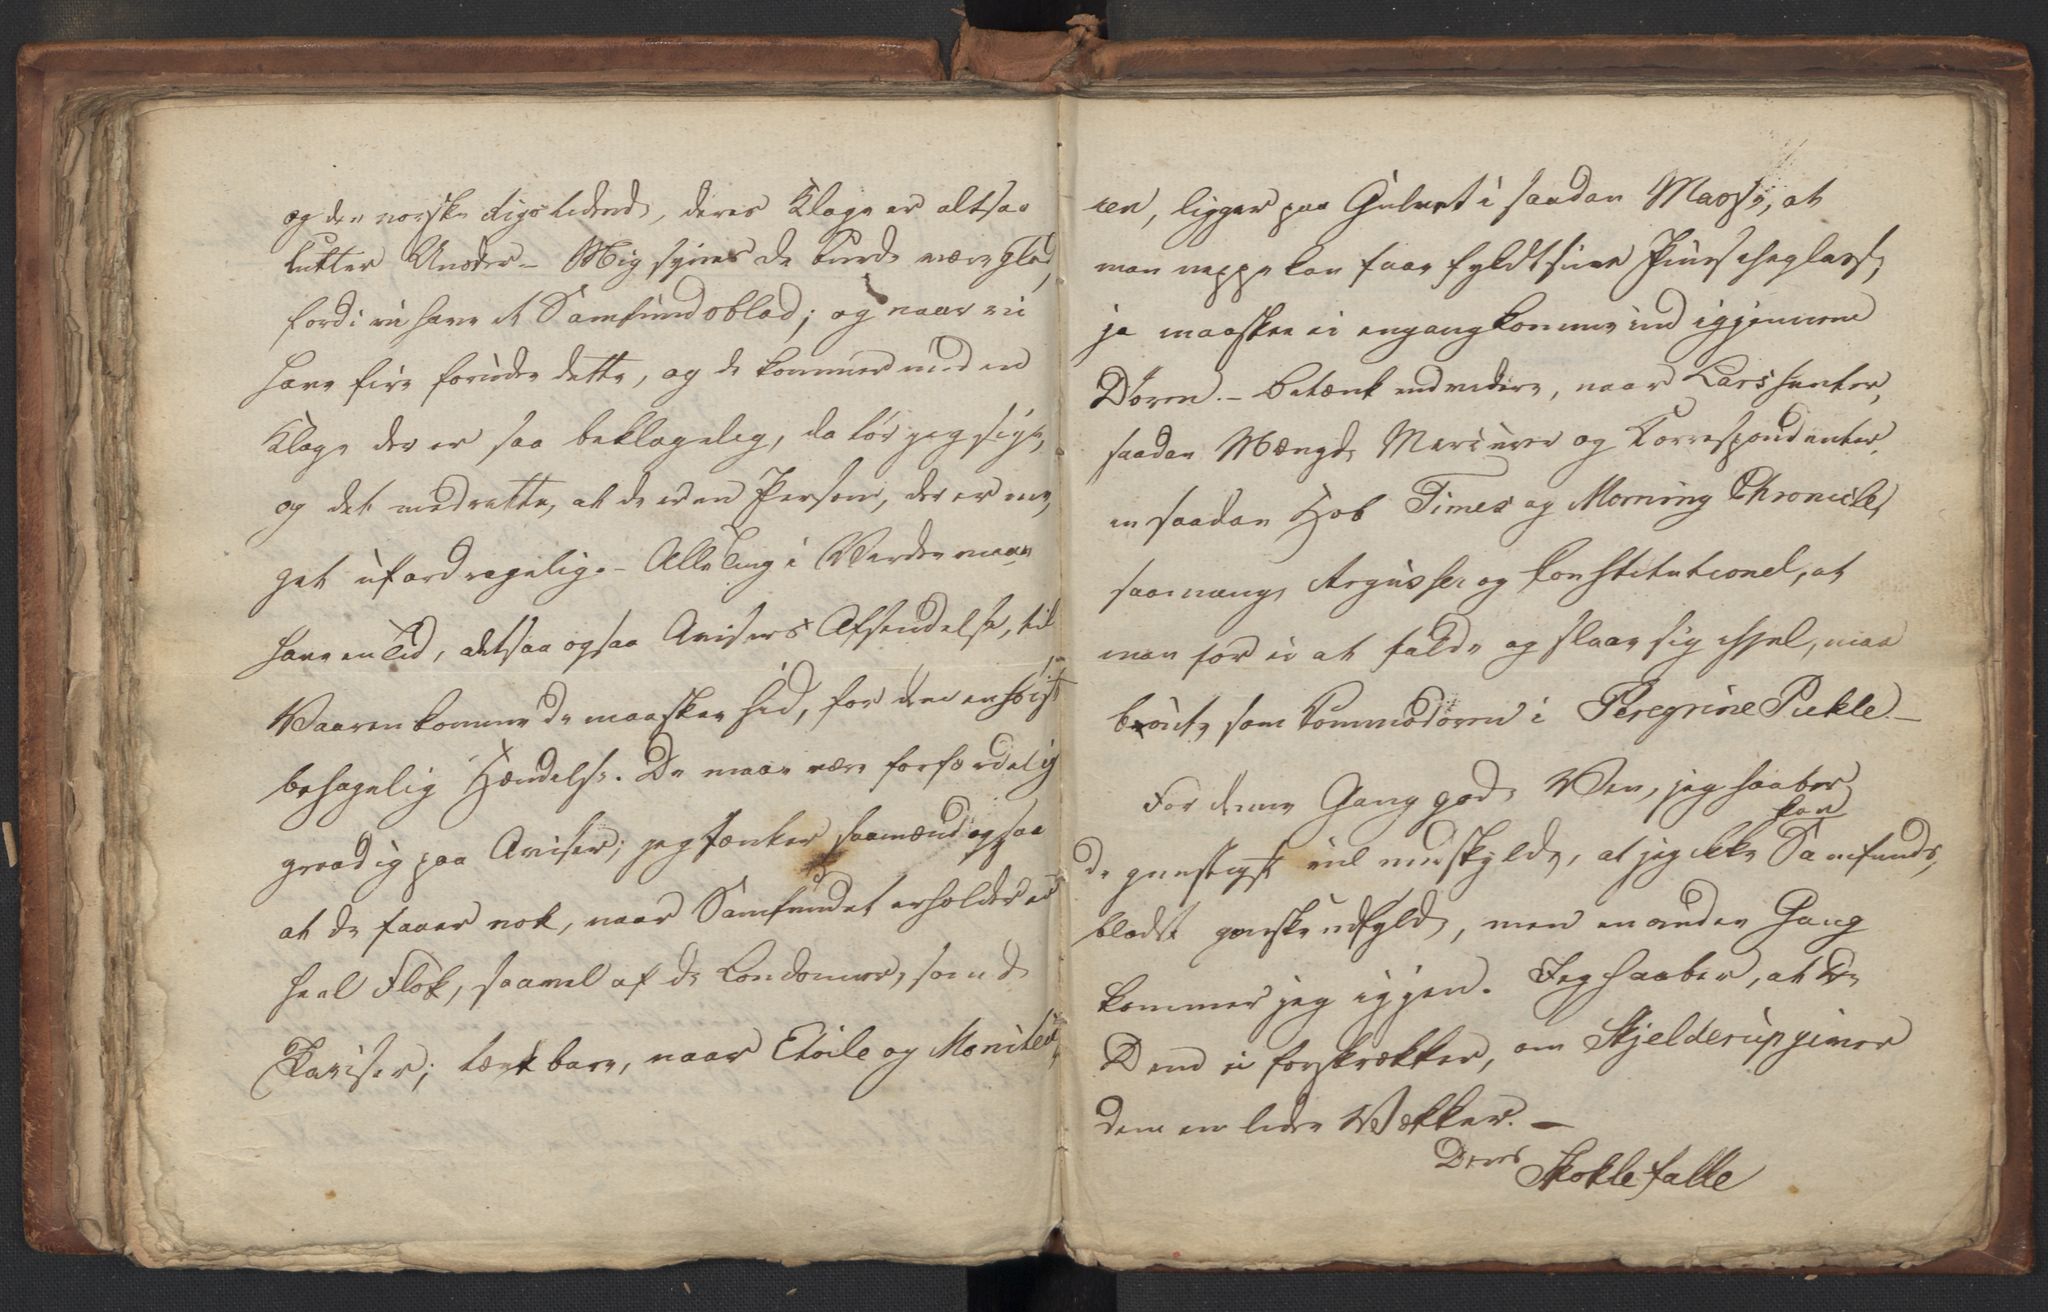 og den norske Rigstidende, deres Klage er altsaa
lutter Unoder – Mig synes De burde være glad,
fordi vi have et Samfundsblad; og naar vi
have fire foruden dette, og De kommer med en
Klage der er saa beklagelig, da tör jeg sige,
og det med rette, at De er en Person, der er me,
get ufordragelig. – Alle Ting i Verden maae
have en Tid, altsaa ogsaa Avisers Afsendelse, til
Vaaren komme de maaskee hid, for dem en höist
behagelig Hændelse. De maae være forfærdelig
graadig paa Aviser; jeg tænker saamænd ogsaa
at De faaer nok, naar Samfundet erholder en
heel Flok, saavel af de Londonner, som de
Pariser; tænk bare, naar Etoile og Monite
ren, ligger paa Gulvet i saadan Masse, at
man neppe kan faae fyldt sine Punscheglasse,
ja maaskee ei engang komme ind igjennem
Dören. – Betænk endvidere, naar Lars henter,
saadan Mængde Mercurer og Correspondenter,
en saadan Hob Times og Morning Chronicle,
saamange Argusser og Constitutionel, at
man for ei at falde og slaae sig ihjel, maa
boute som Commodoren i Peregrine Pickle –
For denne Gang gode Ven, jeg haaber
kan
De gunstigst vil undskylde, at jeg ikke Samfunds,
bladet ganske udfylde, men en anden Gang
kommer jeg igjen. Jeg haaber, at De
Dem ei forskrækker, om Skjelderup giver
dem en liden Vækker. –
Deres Skoklefalle